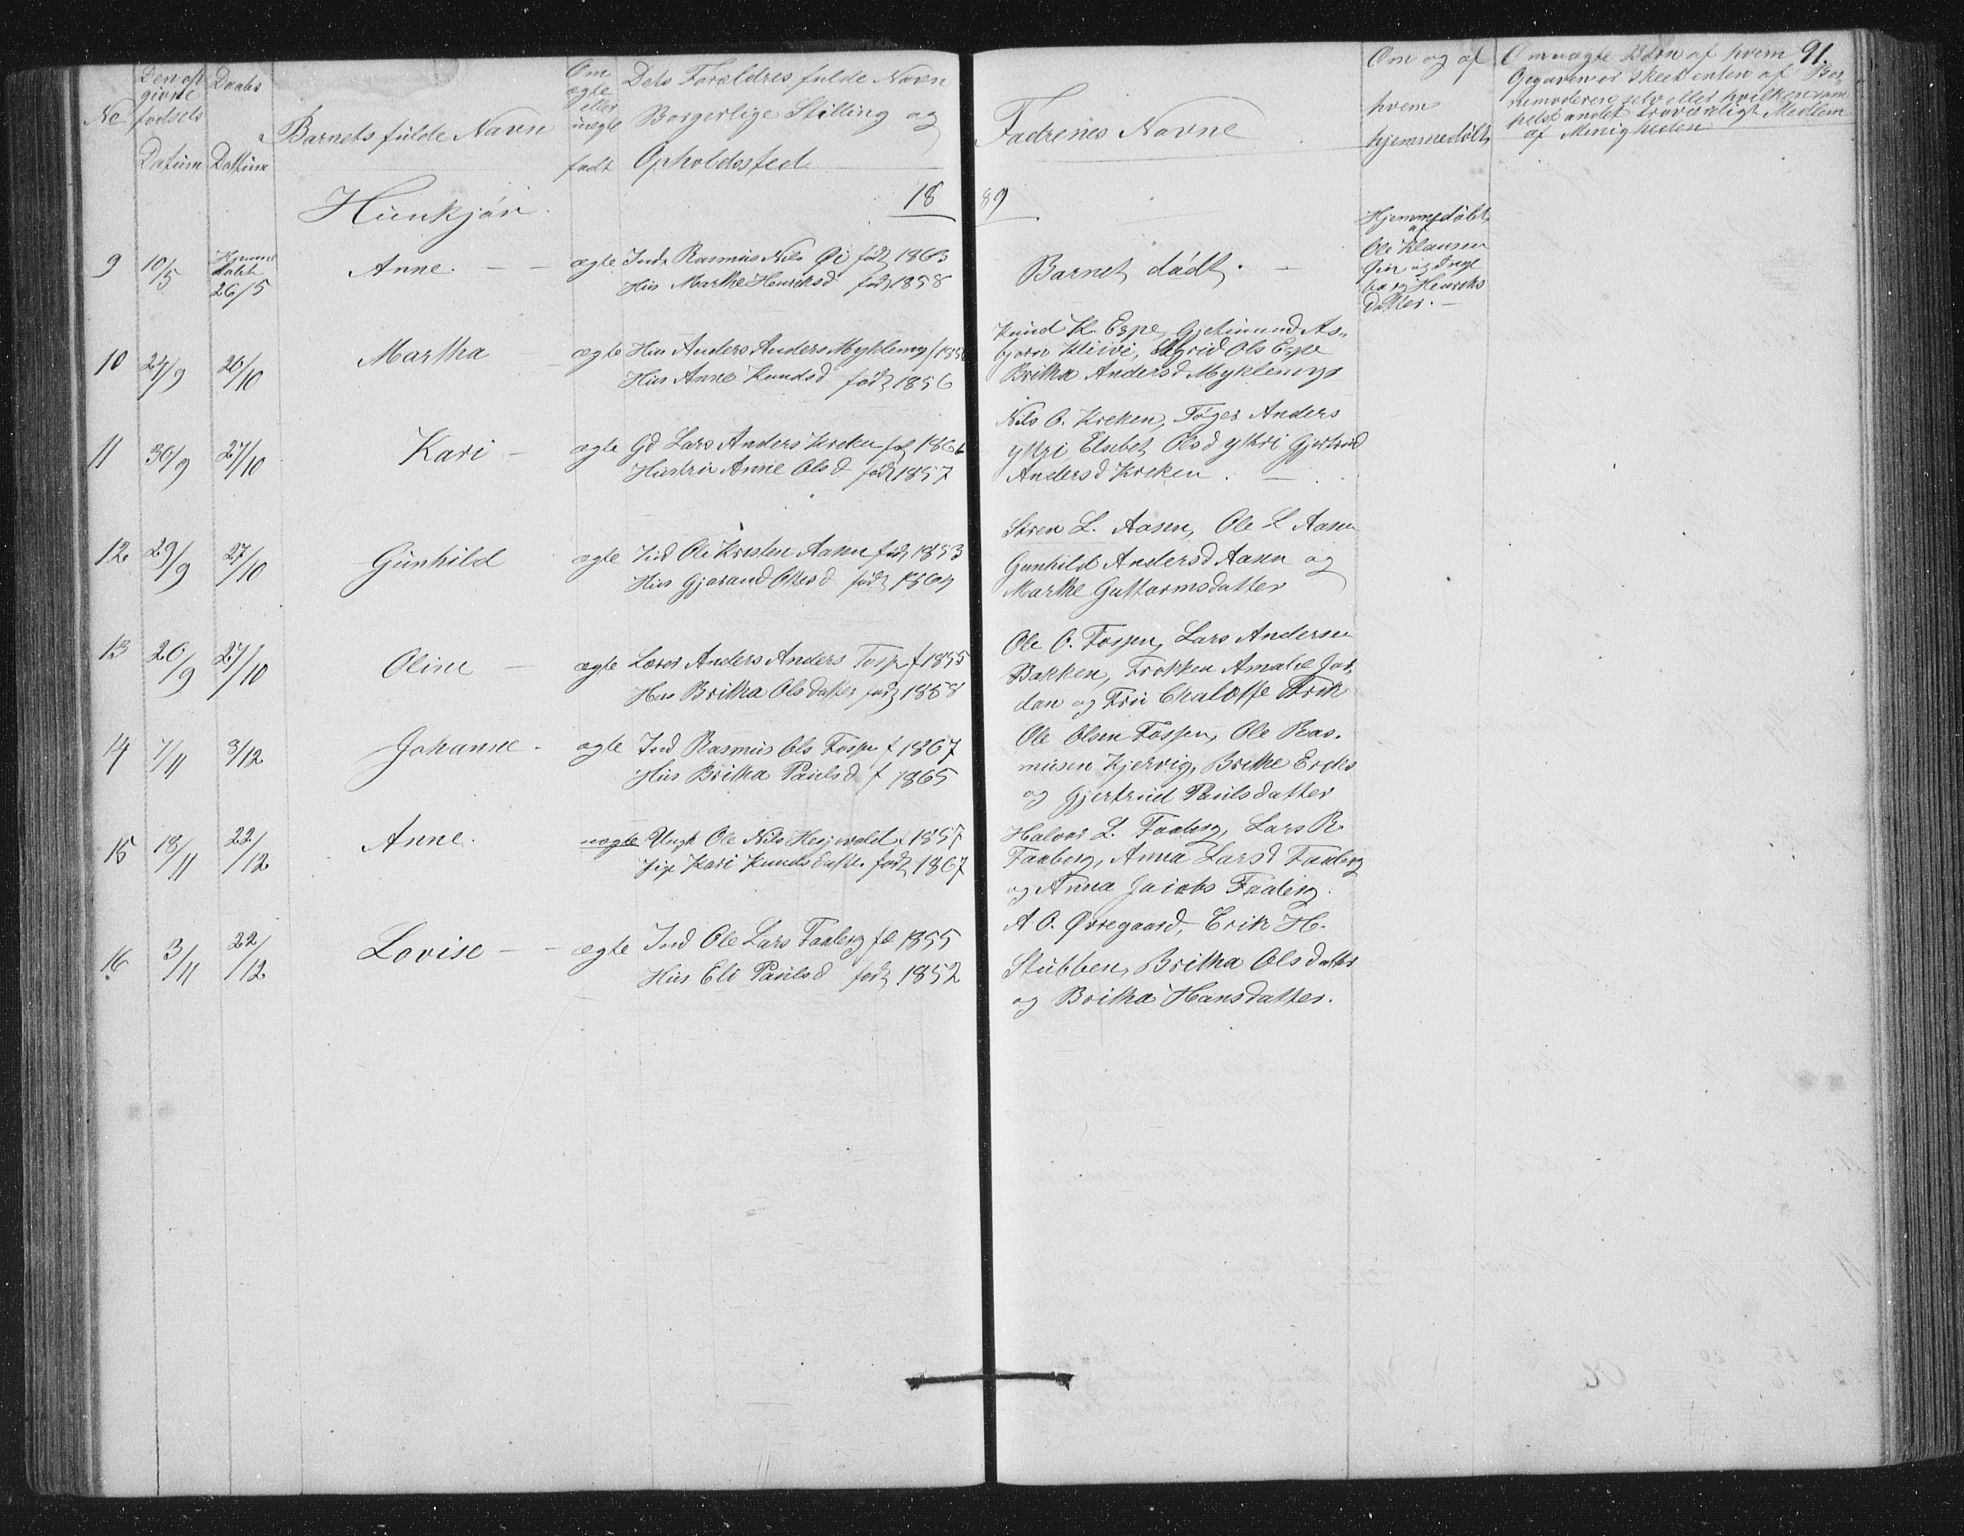 91.
No
Den op
givne
fødsels
Datum
Daabs
Dattum
Barnets fulde Navn
Om
ægte
eller
uægte
født
Dets Forældres fulde Navn
Borgerlige Stilling og
Opholdssted
Fadrenes Navne
Om og af
hvem
hjemmedøbt
Om uægte Børn af hvem
Opgaven er skeet enten af Bar
nemoderen selv eller hvilkensom
helst andet troværdigt Medlem
af Menigheden
Hunkjøn.
18 89
9 10/5 Hjemme
døbt
26/5 Anne. — — ægte Indr Rasmus Nils Øi født 1863
Hus Marthe Henriksd født 1858
Barnet dødt. —
Hjemmedøbt
af
Ole Klausen
Øien og Inge
borg Henriks
datter. —
10 24/9 20/10 Martha — ægte Hus Anders Anders Myklemyr
Hus Anne Knudsd født 1856
Knud K. Espe, Gjetmund As-
bjørn Kleivi, Sigrid Ols Espe
Britha Andersd Myklemyr
11 30/9 27/10 Kari — ægte Gd Lars Anders Kreken
Hustru Anne Olsd født 1857
Nils O. Kreken, Tøger Anders
yttri Elsbet Olsd yttri Gjertrud
Andersd Kreken. —
12 29/9 27/10 Gunhild ægte Ind Ole Kristen Aasen født 1853
Hus Gjørand Ottesd født 1864
Søren L. Aasen, Ole L Aasen
Gunhild Andersd Aasen og
Marthe Guttormsdatter
13 20/9 27/10 Oline — ægte Lærer Anders Anders Fosse f 1855
Hus Britha Olsdatter født 1858
Ole O. Fossen, Lars Andersen
Bakken, Frøkken Amalie Jor-
dan og Fru Chalotte Frik
14 7/11 8/12 Johanne. ægte Ind Rasmus Ols Fosse f 1867
Hus Britha Paulsd f 1865
Ole Olsen Fossen, Ole Ras-
musen Kjervig, Brithe Ercks
og Gjertrud Paulsdatter
15 18/11 22/12 Anne. uægte Ungk Ole Nils f 1857
Pige Kari Knudsdatter født 1867
Halvor L. Faaberg, Lars R.
Faaberg, Anna Larsd Faaberg
og Anna Jacobs Faaberg.
16 3/11 22/12 Lovise — — ægte Ind Ole Lars Faaberg fø 1855
Hus Eli Paulsd født 1852
A. O. Øvregaard, Erik H.
Stubben, Britha Olsdatter
og Britha Hansdatter.